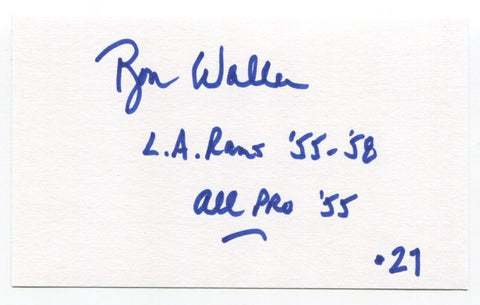 Ron Waller
L.A. Rams '55-'58
All PRO '55
•27